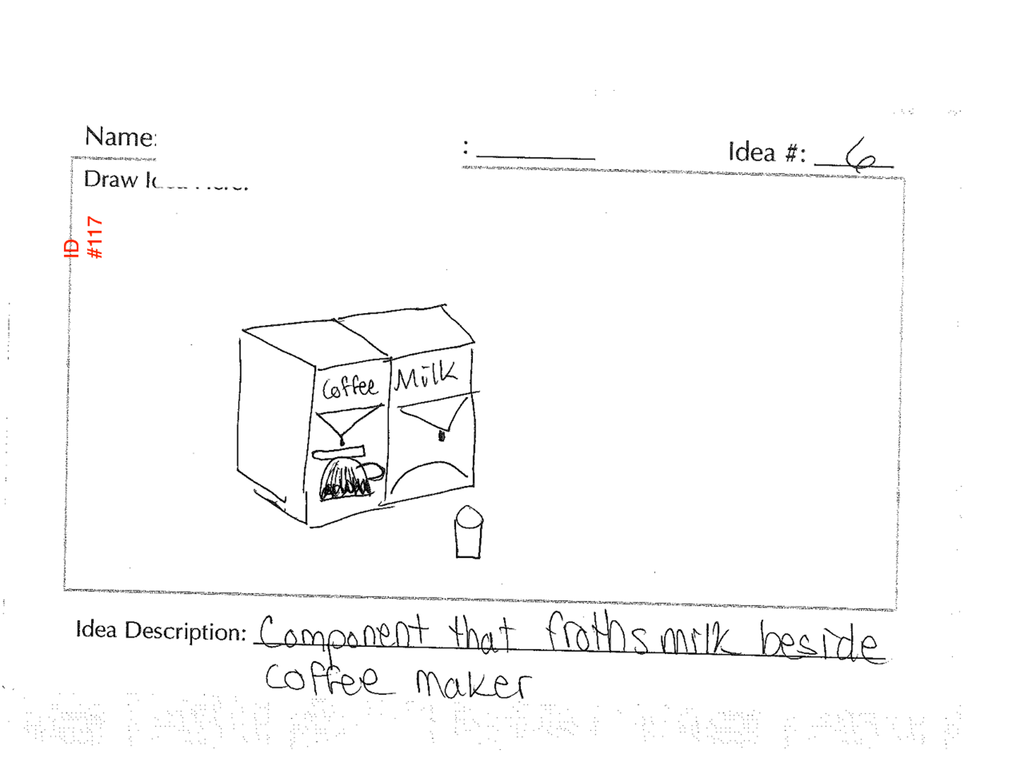 Name:
: Idea #: 6
ID
#117
Coffee Milk
Idea Description: Component that froths milk beside
coffee maker